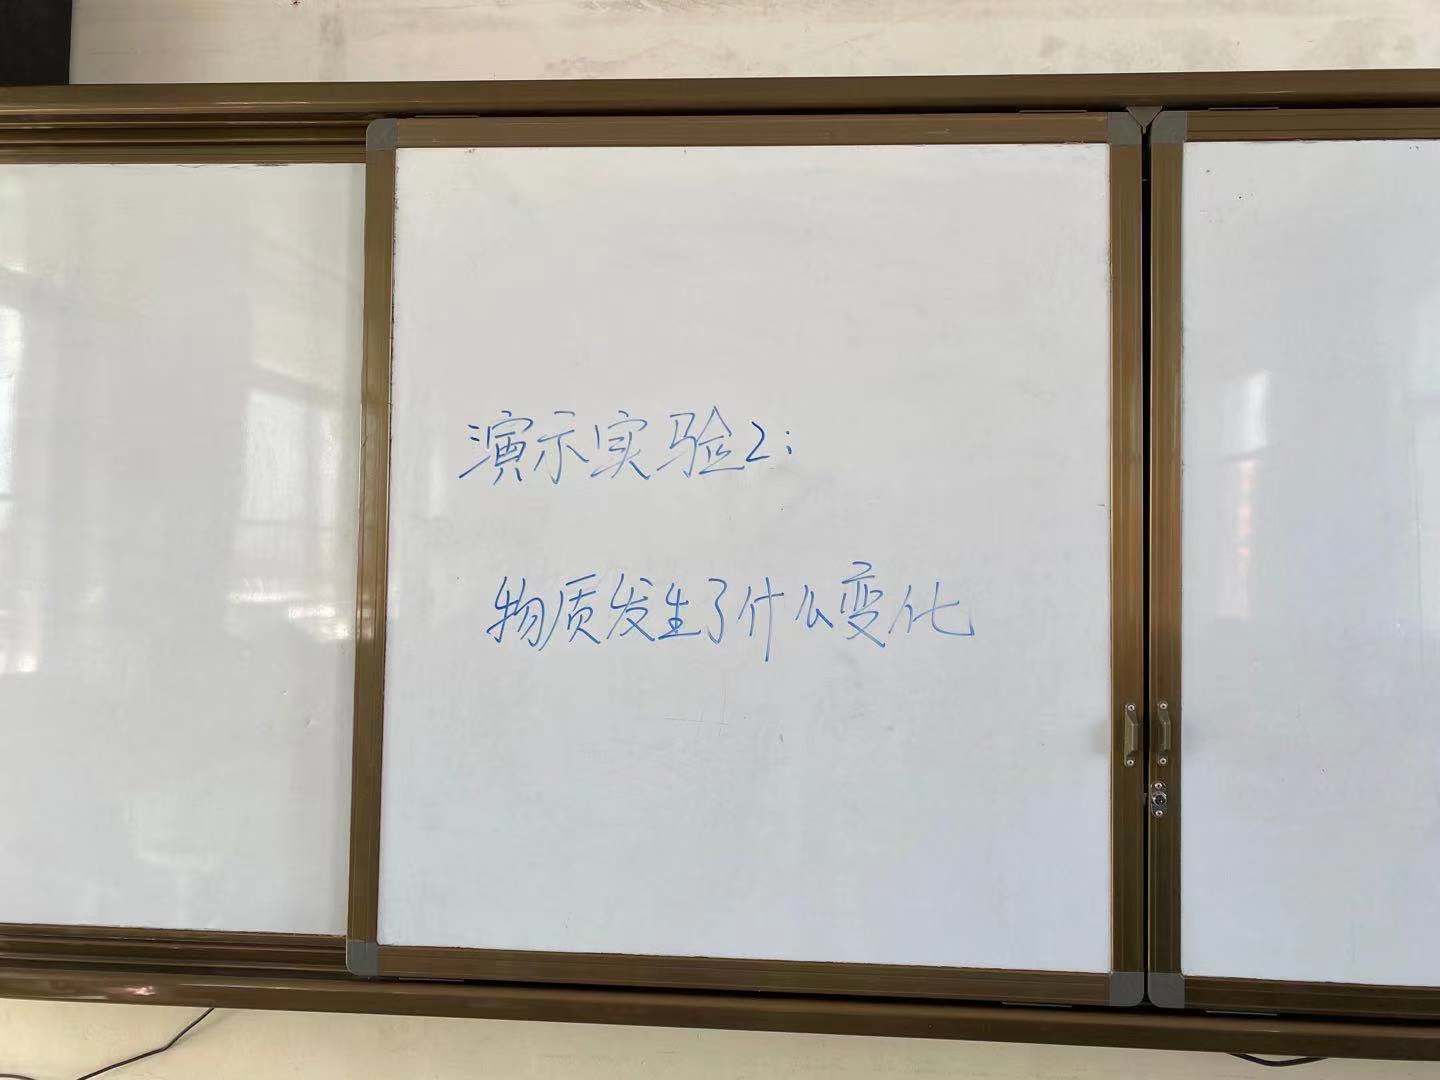 演示实验2:
物质发生了什么变化